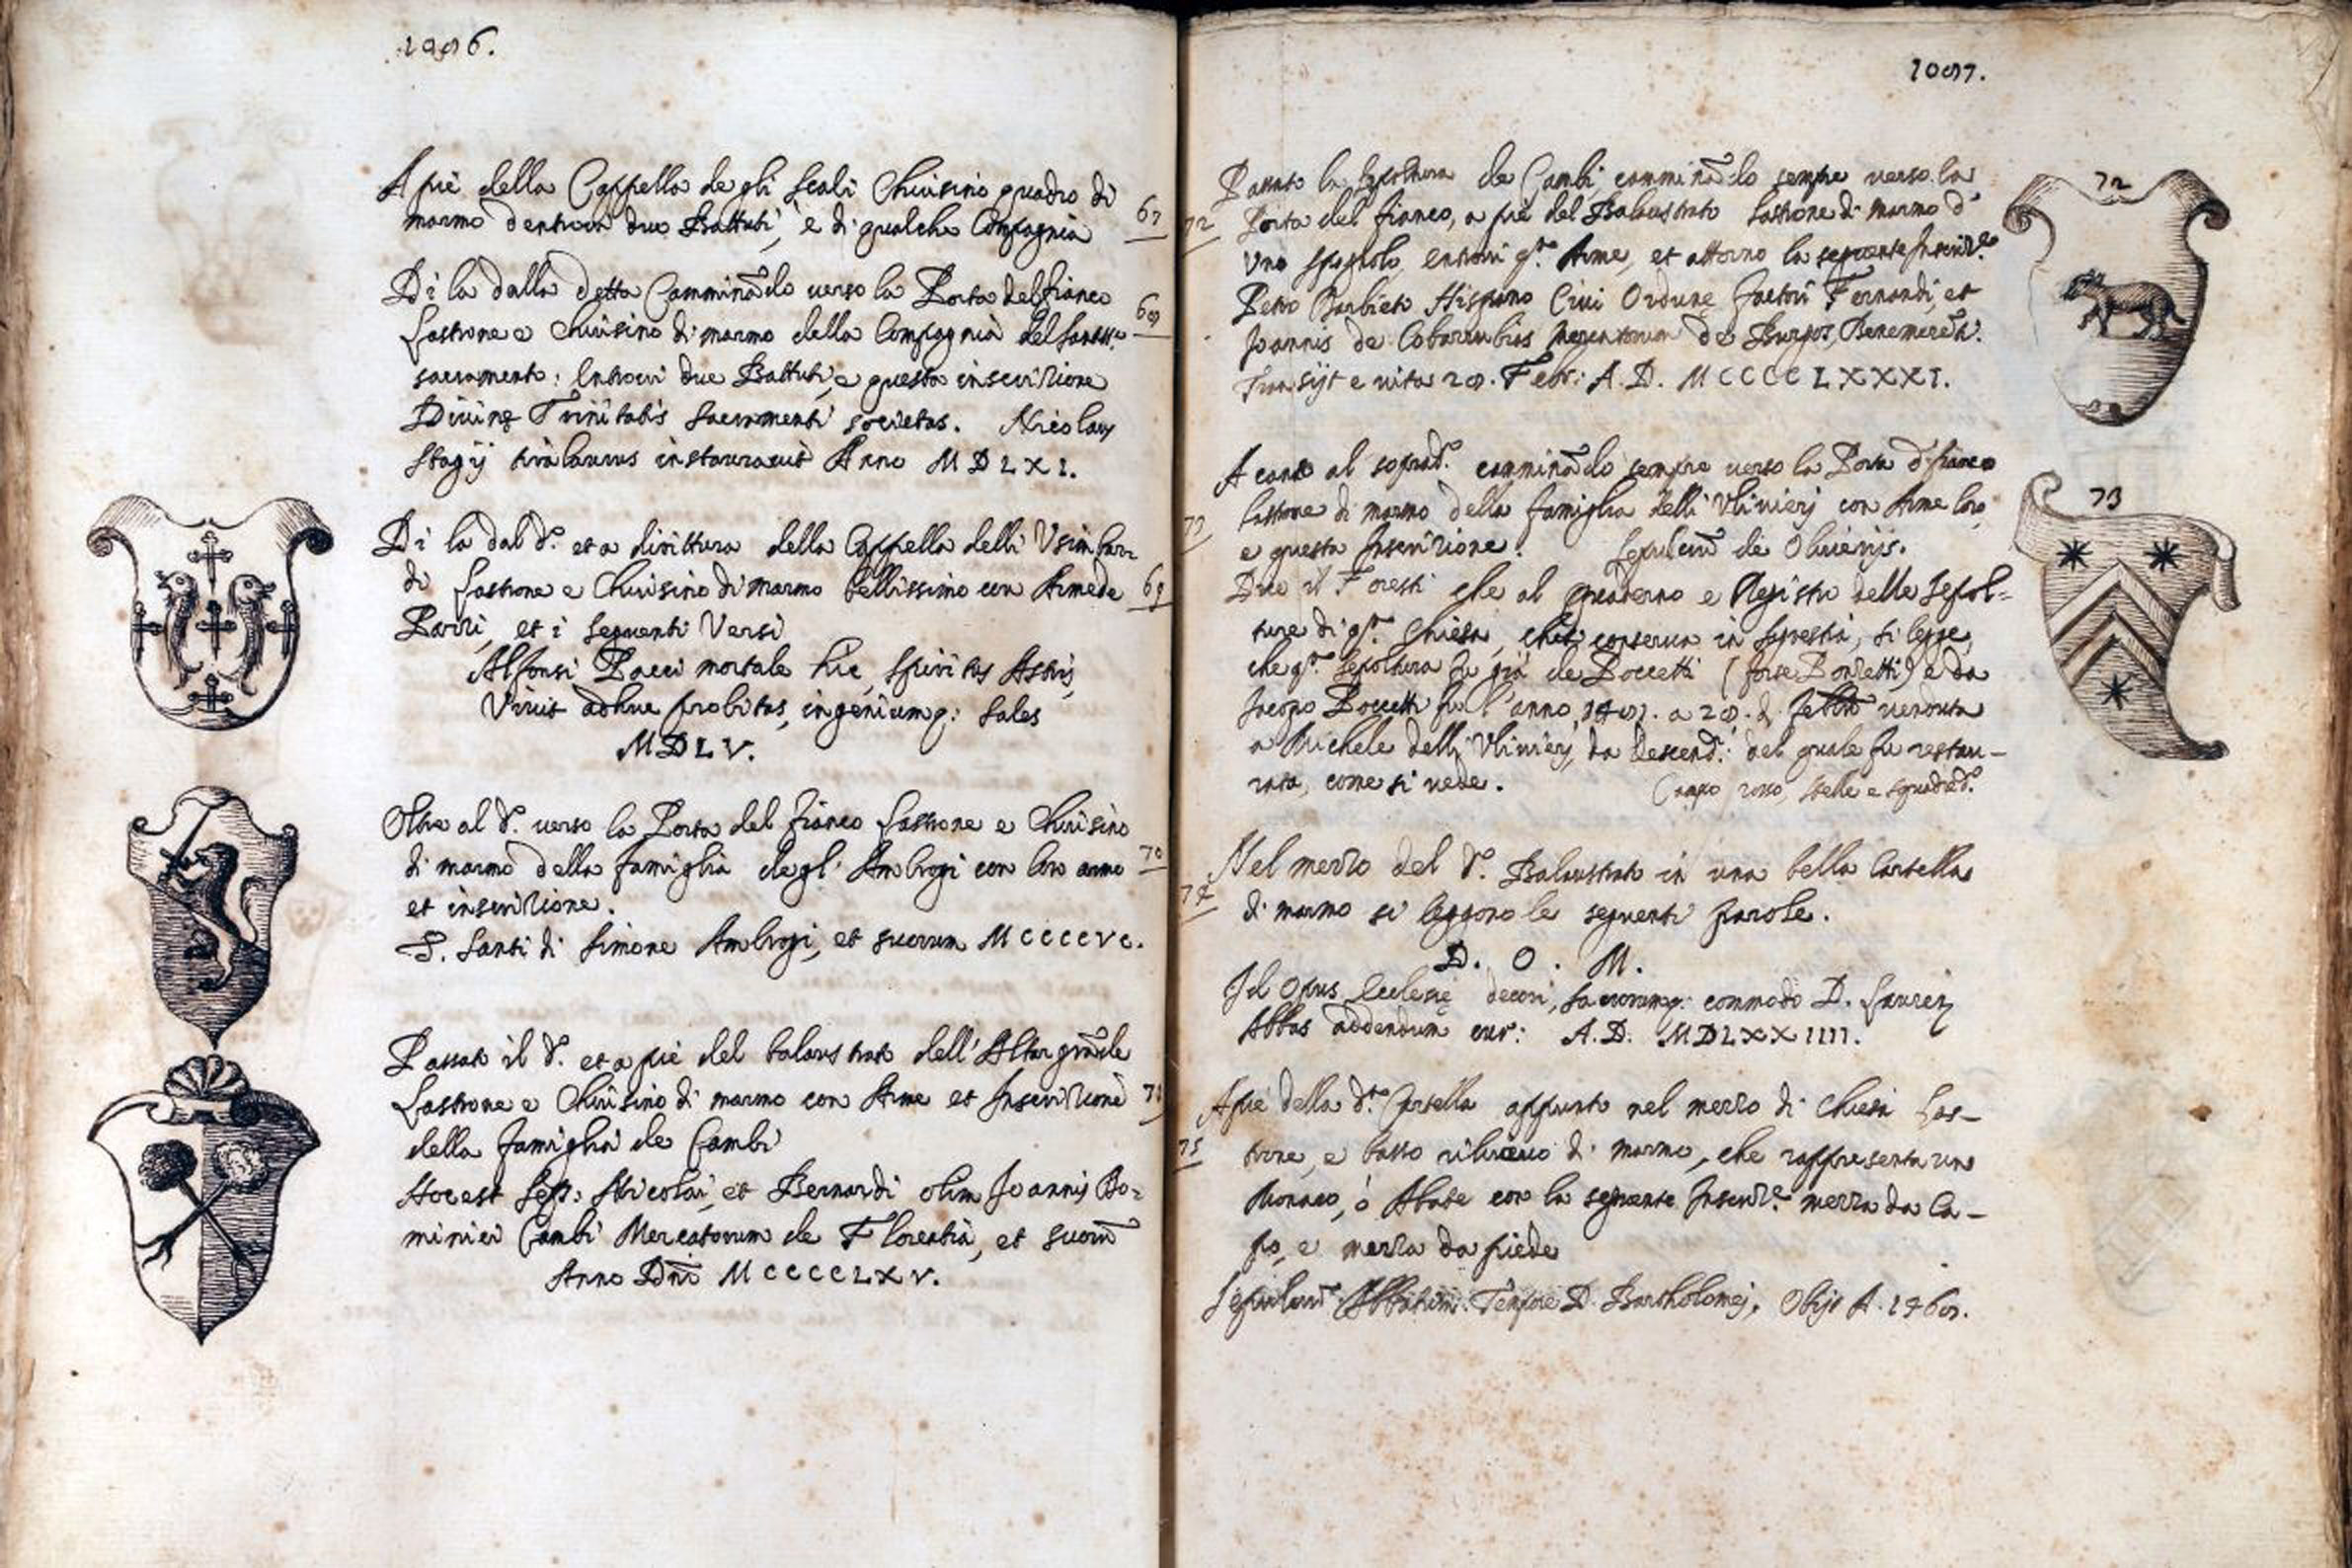 1096.
A piè della Cappella degli Scali Chiusino quadro di
marmo dentrovi due Battuti, è di qualche Compagnia
67
Di la dalla detta Camminãdo verso la Porta del fianco
68
Lastrone e Chiusino di marmo della Compagnia del Santiss.º
sacramento: Entrovi due Battuti, e questa inscrizione
Divinę Trinitatis Sacramenti societas. Nicolaus
Stagij instauravit Anno MDLXI.
Di la dal d.º et a dirittura della Cappella delli Usimbar
di Lastrone e Chiusino di marmo bellissimo con Arme de
69
Pazzi, et i seguenti Versi
Alfonsi Pacci mortale hic, spiritus Astris,
Vivit adhuc probitas, ingeniumq: sales
MDLV.
Oltre al d.º verso la Porta del fianco Lastrone e Chiusino
di marmo della famiglia degl' Ambrogi con loro arme
70
et inscrizione.
S. Santi di Simone Ambrogi, et suorum MCCCCVC.
Passato il d.º et a piè del balaustrato dell'Altar grãde
Lastrone e Chiusino di marmo con Arme et Inscrizione
71
della famiglia de Cambi
Hoc est Sep: Nicolai, et Bernardi olim Joannis Do=
minici Cambi Mercatorum de Florentia, et suorũ
Anno Dñi MCCCCLXV.
1097.
Passato la sepoltura de Cambi, camminãdo sempre verso la
72
Porta del fianco, a piè del Balaustrato Lastrone di marmo d'
uno Spagnolo, entrovi q.ta Arme, et attorno la seguente Inscriz.e
Petro Barbieto Hispano Civi Ordunę factori Fernandi, et
Joannis de Cobarrubias mercatorum de Burgos, Benemerẽti.
Transijt e vita 28. Febr: A.D. MCCCCLXXXI.
72
A canto al soprad.º camminãdo sempre verso la Porta d. fianco
73
lastrone di marmo della famiglia delli Ulivieri con Arme loro
e questa Inscrizione. Sepulcrũ de Oliverijs.
Dice il Foresti che al quaderno e Registro delle sepol=
ture di q.ta Chiesa, che si conserva in sagrestia, si legge,
che q.ta sepoltura fu già de Boccetti (forse Bonzetti) e da
Jacopo Boccetti fu l'anno a 28. di febb.º venduta
a Michele delli Ulivieri, da descend.ti del quale fu restau-
rata, come si vede. Campo rosso, stelle e squad.
73
Nel mezzo del d.º Balaustrato in una bella Cartella
74
di marmo si leggono le seguenti parole.
D. O. M.
Id Opus Ecclesię decori, sacrorumq: commodo D. Laurez
Abbas addendum cur: A.D. MDLXXIIII.
A piè della d.ta Cartella appunto nel mezzo di Chiesa Las-
75
trone, e basso rilievo di marmo, che rappresenta un
Monaco, ò Abate con la seguente Inscriz.e mezza da Ca-
po, e mezza da piede
Sepulcrũ Abbatum. Tempore D. Bartholomej, Obijt A. 1468.